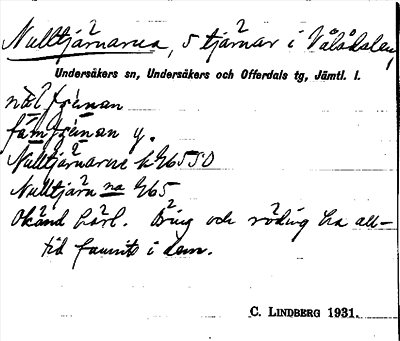 Nulltjärnarna, 5 tjärnar i Vålådalen,
Undersåkers sn, Undersåkers och Offerdals tg, Jämtl. l.
Nulltjärnarne k G655O
Nulltjärn na G65
Okänd härl. Öring och röding ha all-
tid funnits i dem.
C. LINDBERG 1931.